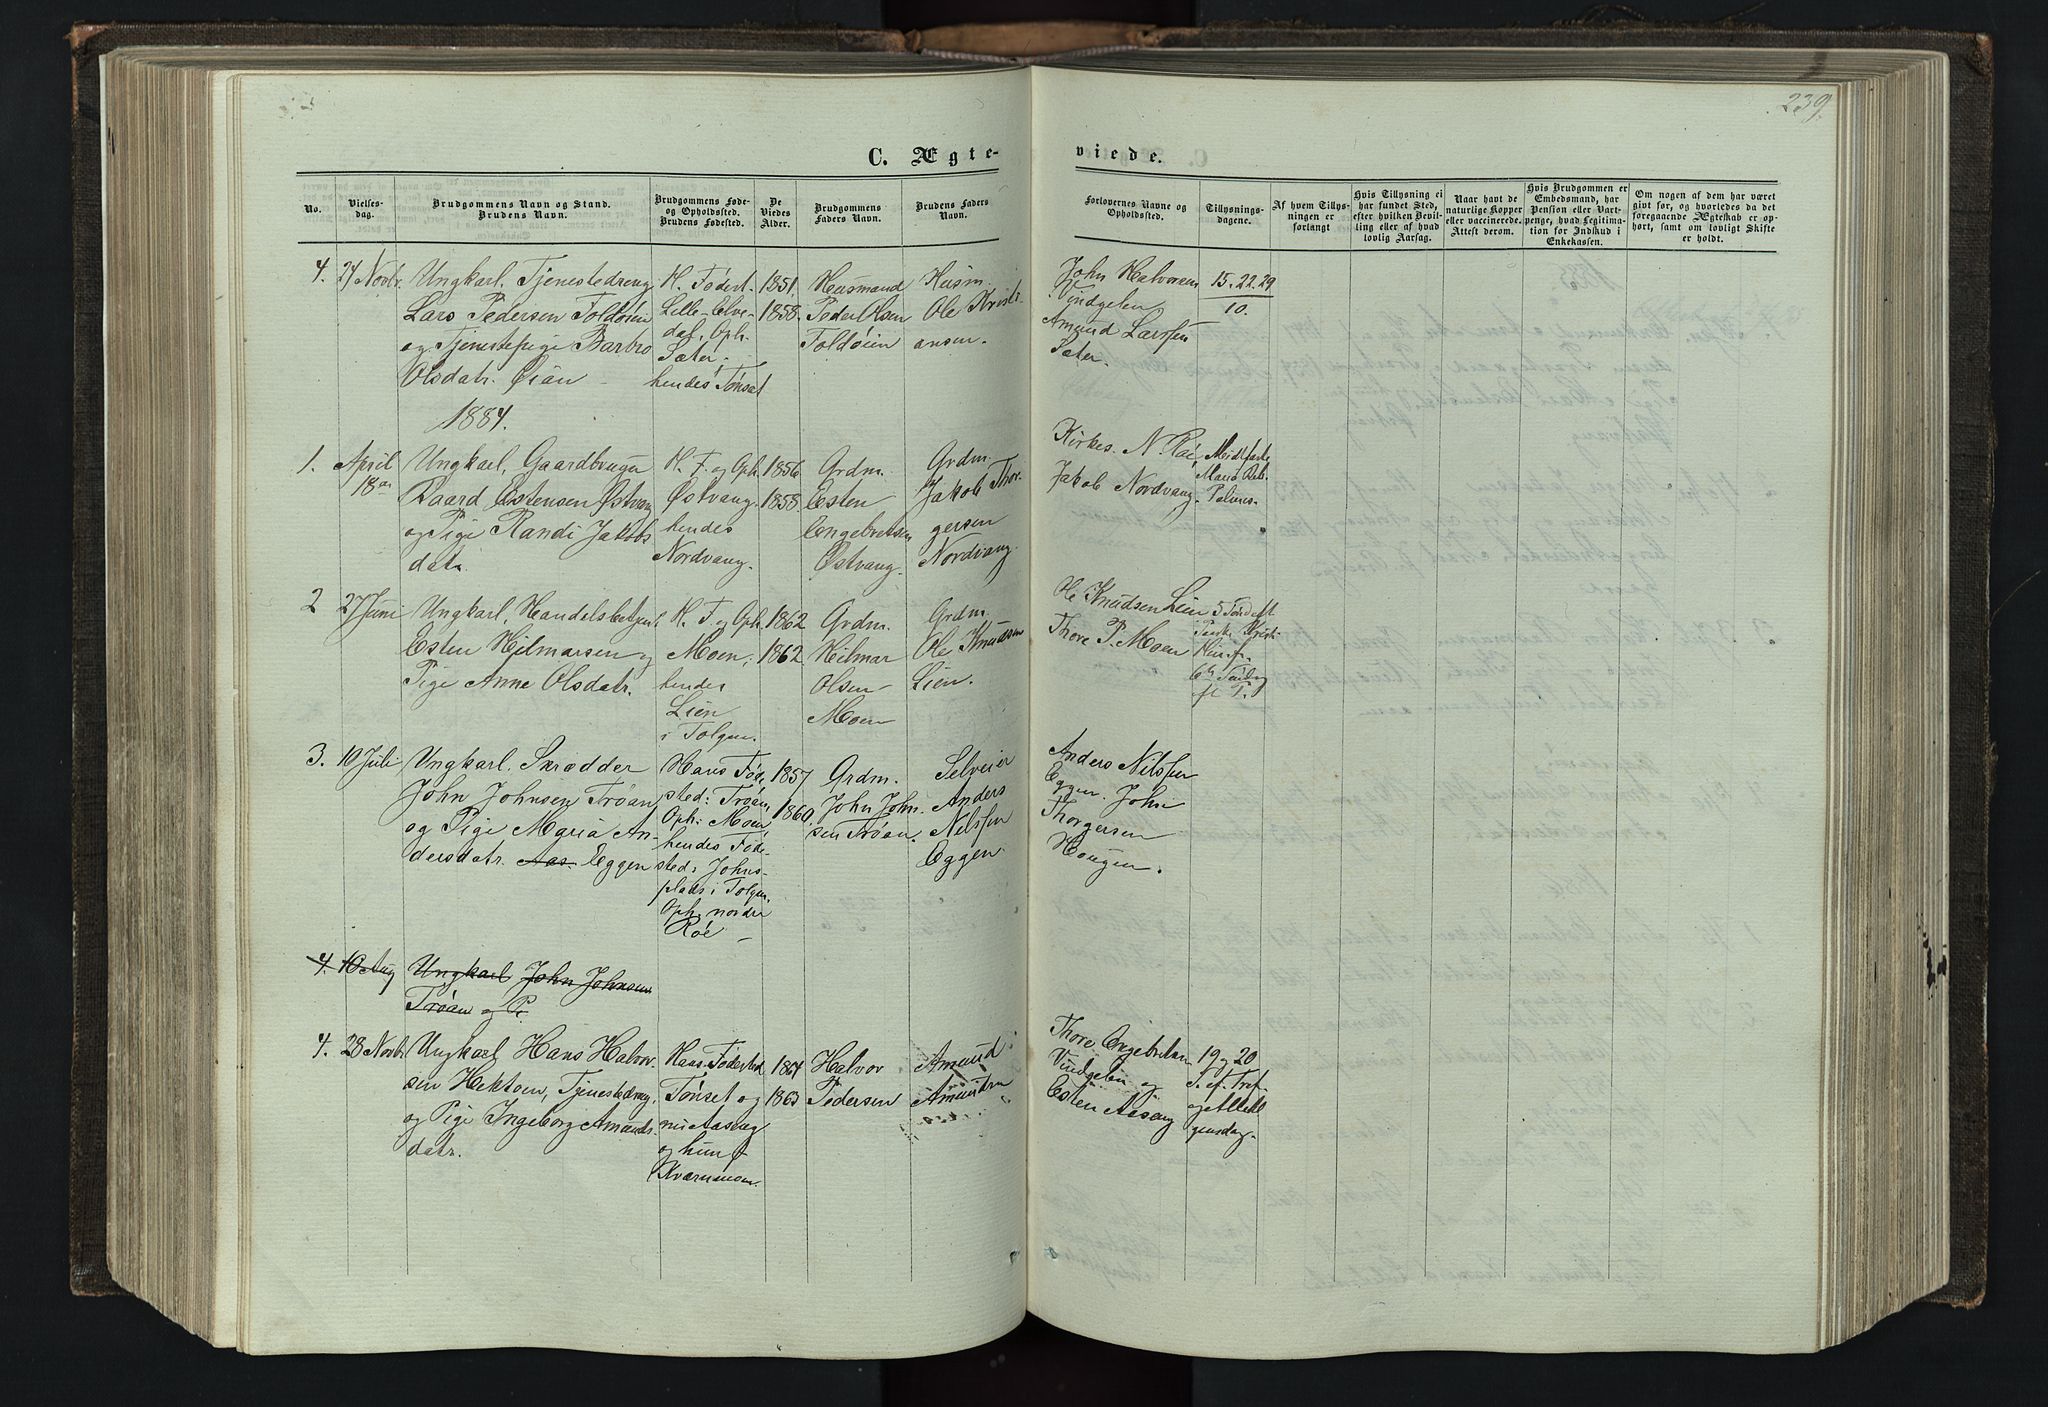 239.
C. Ægte-
viede.
No.
Vielses-
dag.
Brudgommens Navn og Stand.
Brudens Navn.
Brudgommens Føde-
og Opholdssted.
Brudens Fødested.
De
Viedes
Alder.
Brudgommens
Faders Navn.
Brudens Faders
Navn.
Forlovernes Navne og
Opholdssted.
Tillysnings-
dagene.
Af hvem Tillys-
ningen er
forlangt
Hvis Tillysning ei
har fundet Sted,
efter hvilken Bevil-
ling eller af hvad
lovlig Aarsag.
Naar havt de
naturlige Kopper
eller vaccinerede.
Attest derom.
Hvis Brudgommen er
Embedsmand, har
Pension eller Vart-
penge, hvad Legitima-
tion for Indskud i
Enkekassen.
Om nogen af dem har været
gift før, og hvorledes da det
foregaaende Ægteskab er op-
hørt, samt om lovligt Skifte
er holdt.
4.
24 Novbr.
Ungkarl. Tjenestedreng
Lars Pedersen Toldøien
og Tjenestepige Barbro
Olsdatr. Øian
H. Fødest.
Lille-Elve-
dal, Oph.
Sæter.
hendes Tønset
1851.
1858.
Husmand
Peder Olsen
Toldøien
Husm.
Ole Kristi-
ansen.
John Halvorsen
Vindgelen
Amund Larssen
Sæter.
15. 22. 29
10.
1884.
1.
April
18de
Ungkarl, Gaardbruger
Baard Estensen Østvang
og Pige Randi Jakobs
datr.
H. F. og Oph.
Østvang.
hendes
Nordvang.
1856
1858
Grdm.
Esten
Engebretsen
Østvang.
Grdm.
Jakob Thor-
gersen
Nordvang.
Kirkes. N. Røe
Jakob Nordvang.
Midtfaste
Maria Beb.
Palmes.
2
27 Juni
Ungkarl, Handelsbetjent
Esten Hilmarsen og
Pige Anne Olsdatr.
H. F. og Oph.
Moen,
hendes
Lien
i Tolgen.
1862
1862
Grdm.
Hilmar
Olsen
Moen
Grdm.
Ole Knudsen
Lien.
Ole Knudsen Lien
Thore P. Moen
3.
10 Juli
Ungkarl. Skrædder
John Johnsen Trøan
og Pige Maria An-
dersdatr. Aas. Eggen
Hans Fød.
sted: Trøan,
Oph: Moen
hendes Føde-
sted: Johns-
plads i Tolgen,
Oph. nordre
Røe
1857
1860.
Grdm.
John John-
sen Trøan.
Selveier
Anders
Nilssen
Eggen.
Anders Nilssen
Eggen. John
Thorgersen
Hougen.
4.
10 Aug
Ungkarl John Johnsen
Trøan og P
4.
28 Novbr.
Ungkarl Hans Halvor-
sen Hektoen, Tjenestedreng,
og Pige Ingeborg Amunds-
datr.
Hans Fødested
Tønset og
nu Aaseng
og hun f
Kværnmoen.
1864
1863
Halvor
Pedersen
Amund
Amundsen
Thore Engebretsen
Vindgelen og
Esten Aaseng
19 og 20
S. ef. Tref.
og Allehl
gensdag.